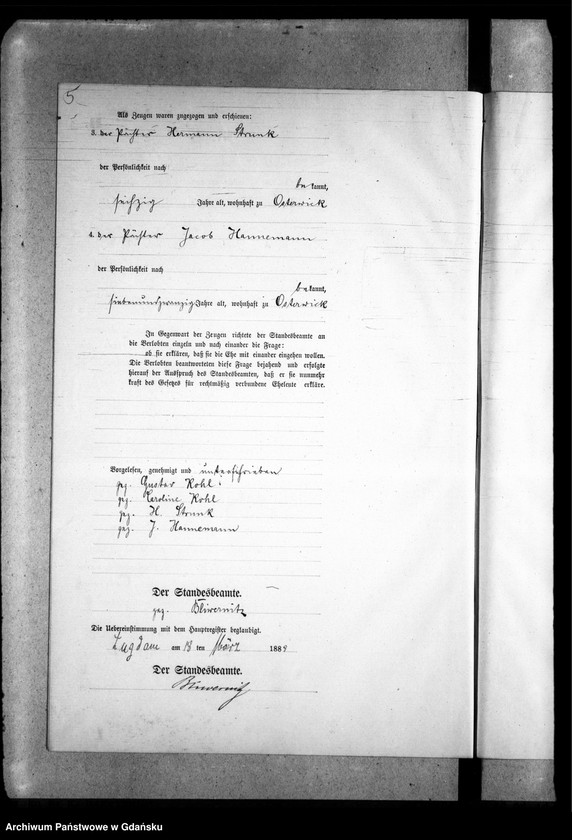 5
Als Zeugen waren zugezogen und erschienen:
3. der Pächter Hermann Strunk
der Persönlichkeit nach
be kannt,
sechzig Jahre alt, wohnhaft zu Osterwick
4. der Pächter Jacob Hannemann
der Persönlichkeit nach
be kannt,
siebenundzwanzig Jahre alt, wohnhaft zu Osterwick
In Gegenwart der Zeugen richtete der Standesbeamte an
die Verlobten einzeln und nach einander die Frage:
ob sie erklären, daß sie die Ehe mit einander eingehen wollen.
Die Verlobten beantworteten diese Frage bejahend und erfolgte
hierauf der Ausspruch des Standesbeamten, daß er sie nunmehr
kraft des Gesetzes für rechtmäßig verbundene Eheleute erkläre.
Vorgelesen, genehmigt und unterschrieben
gez. Gustav Kohl
gez. Caroline Kohl
gez. H. Strunk
gez. J. Hannemann
Der Standesbeamte.
gez.
Die Uebereinstimmung mit dem Hauptregister beglaubigt.
am 13 ten März 1889
Der Standesbeamte.
Archiwum Państwowe w Gdańsku